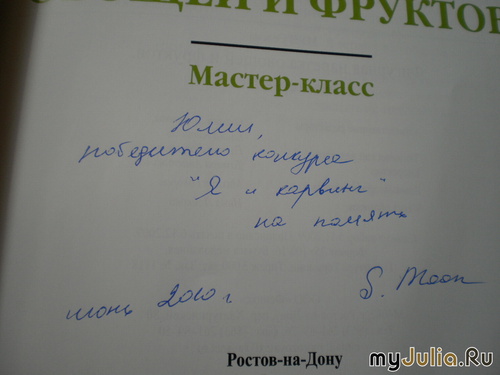 ОВОЩЕЙ И ФРУКТОВ
Мастер-класс
Юлии,
победителю конкурса
"Я и карвинг"
на память
июнь 2010 г.
S. Moon
Ростов-на-Дону
myJulia.Ru